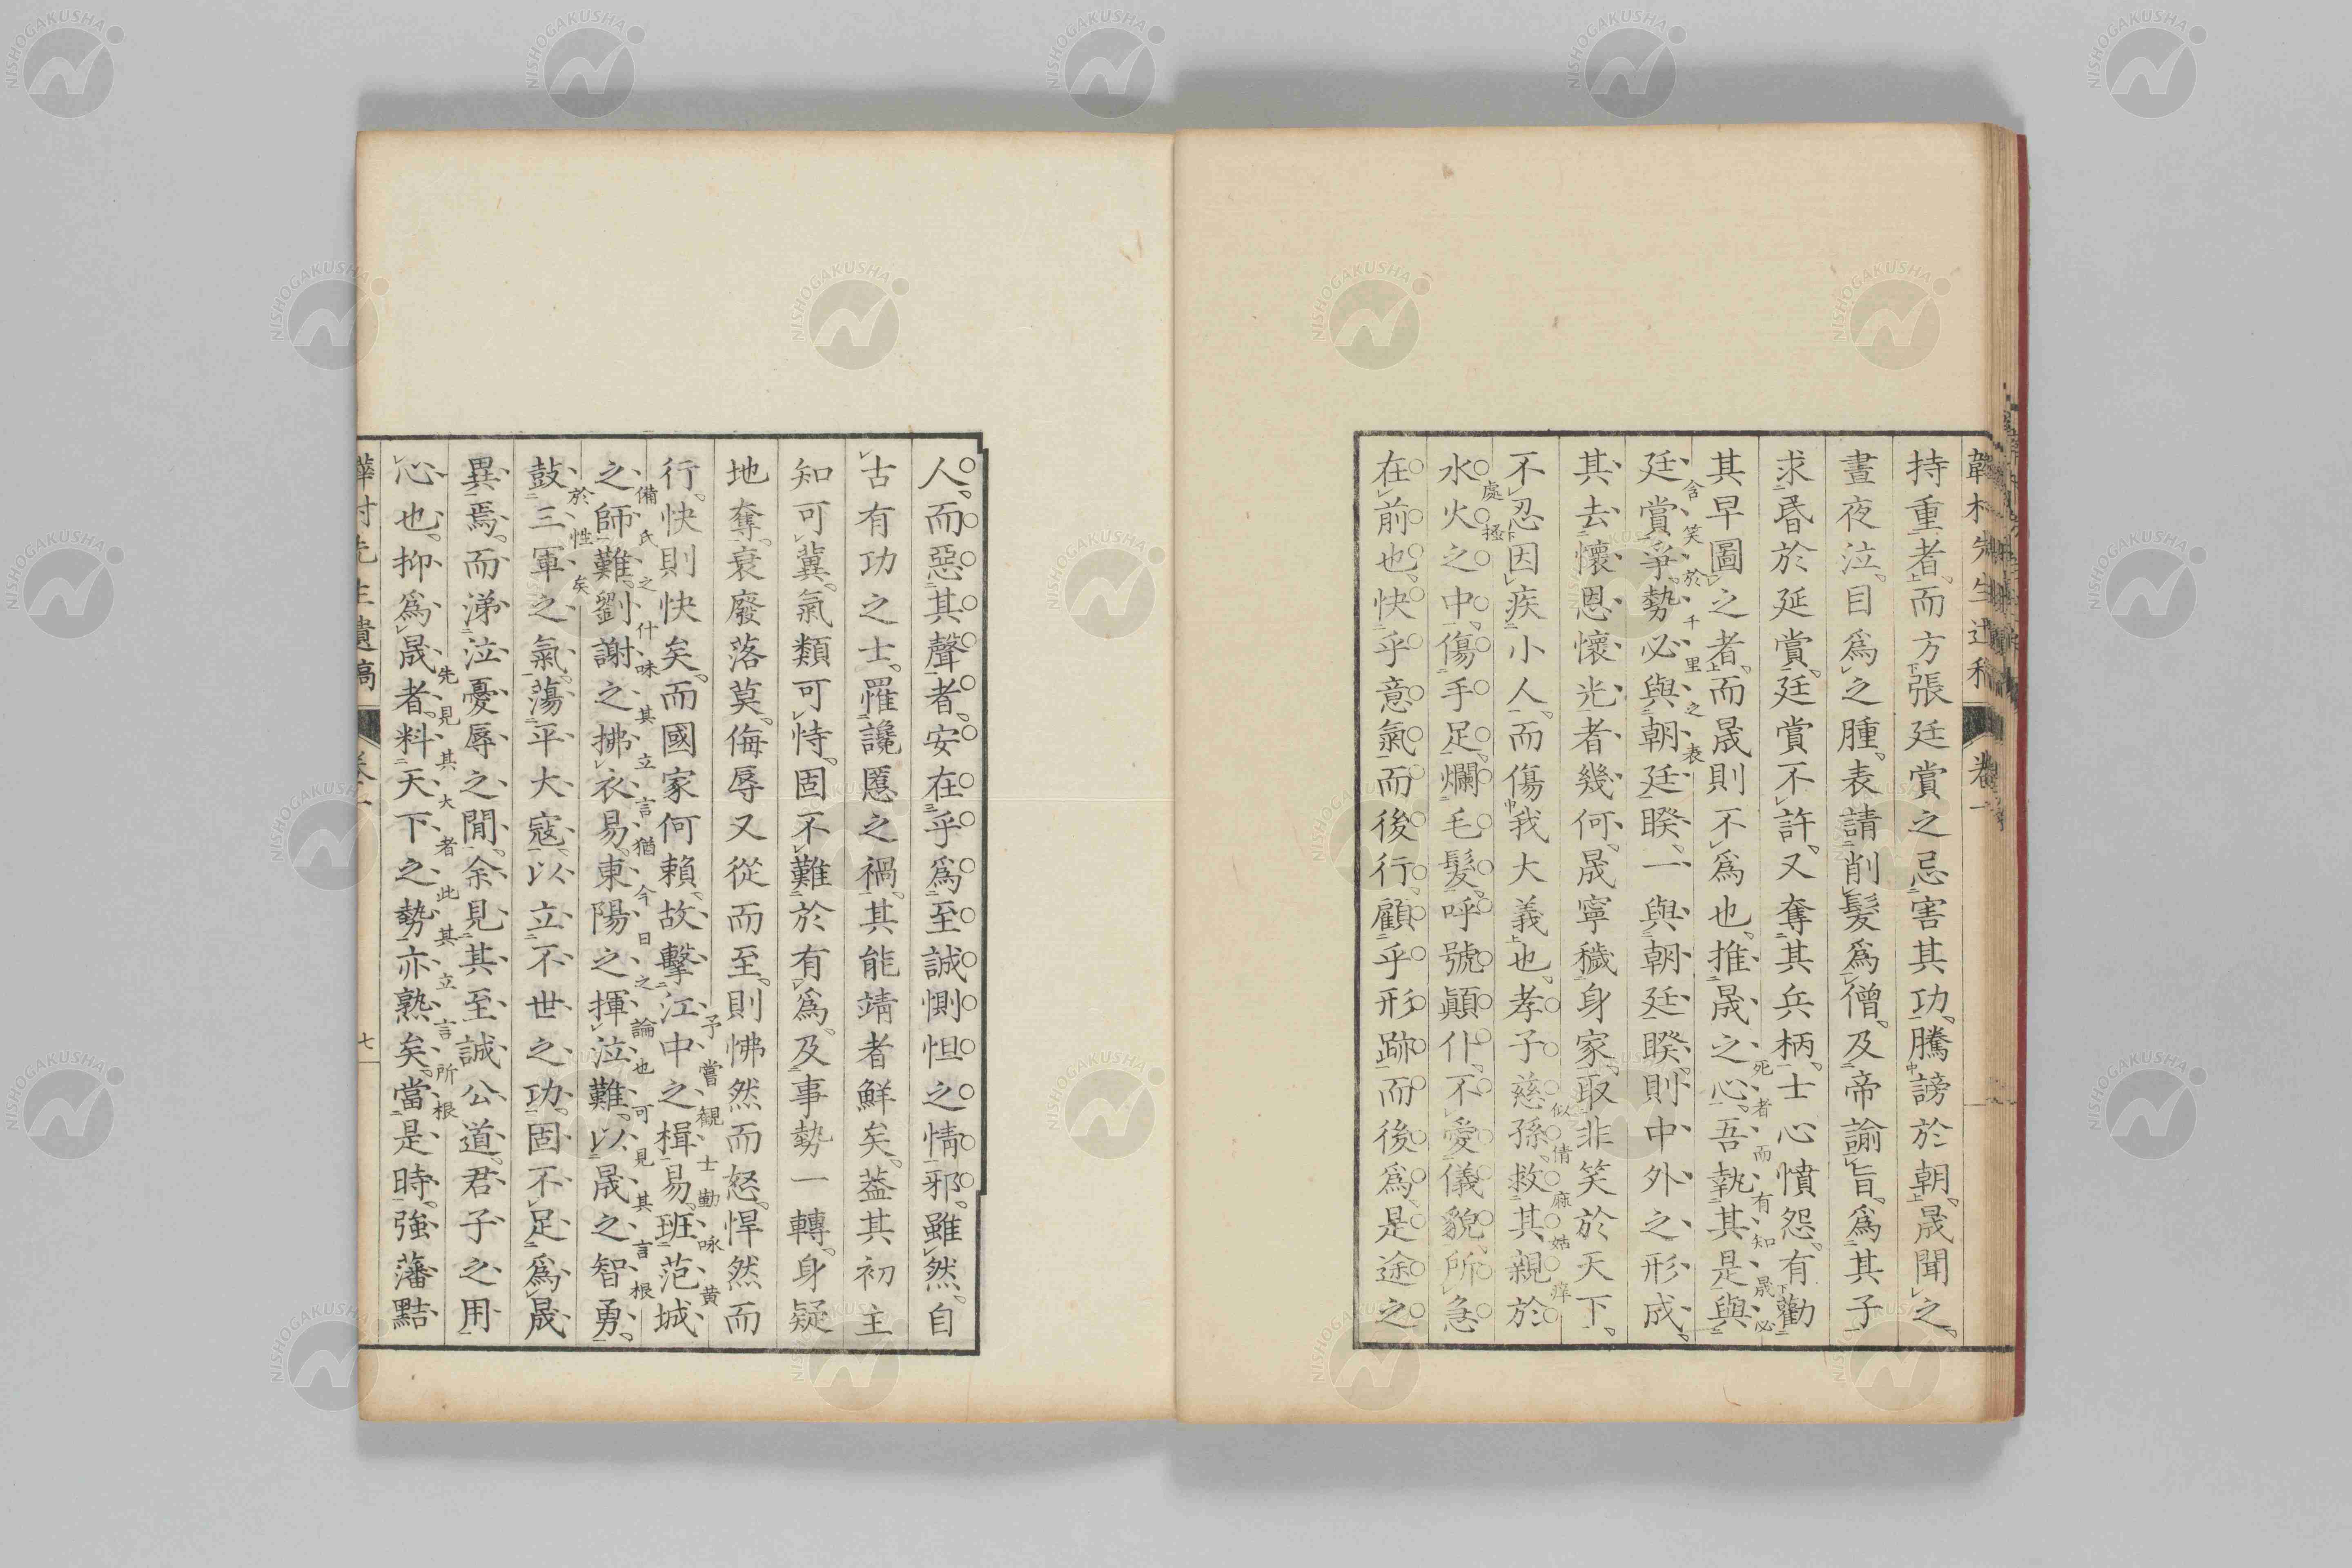 持重者而方張廷賞之忌害其功騰謗於朝晟聞之
晝夜泣目爲之腫表請削髮爲僧及帝諭旨爲其子
求昏於延賞廷賞不許又奪其兵柄士心憤怨有勸
其早圖之者而晟則不爲也推晟之心吾執其是與
死者而有知晟必
廷賞爭勢必與朝廷睽一與朝廷睽則中外之形成
含笑於千里之表
其去懷恩懷光者幾何晟寧穢身家取非笑於天下
不忍因疾小人而傷我大義也孝子慈孫救其親於
似倩麻姑痒
水火之中傷手足爛毛髮呼號顚仆不愛儀貌所急
處搔
在前也快乎意氣而後行顧乎形跡而後爲是途之
人而惡其聲者安在乎爲至誠惻怛之情邪雖然自
古有功之士罹讒慝之禍其能靖者鮮矣蓋其初主
知可冀氣類可恃固不難於有爲及事勢一轉身疑
地奪衰廢落莫侮辱又從而至則怫然而怒悍然而
行快則快矣而國家何賴故擊江中之楫易班范城
予嘗観士勤咏黄
之師難劉謝之拂衣易東陽之揮泣難以晟之智勇
備氏之什味其立言猶今日之論也可見其言根
鼓三軍之氣蕩平大寇以立不世之功固不足爲晟
於性矣
異焉而涕泣憂辱之閒余見其至誠公道君子之用
心也抑爲晟者料天下之勢亦熟矣當是時強藩黠
先見其大者此其立言所根
卷一
七
NISHOGAKUSHA